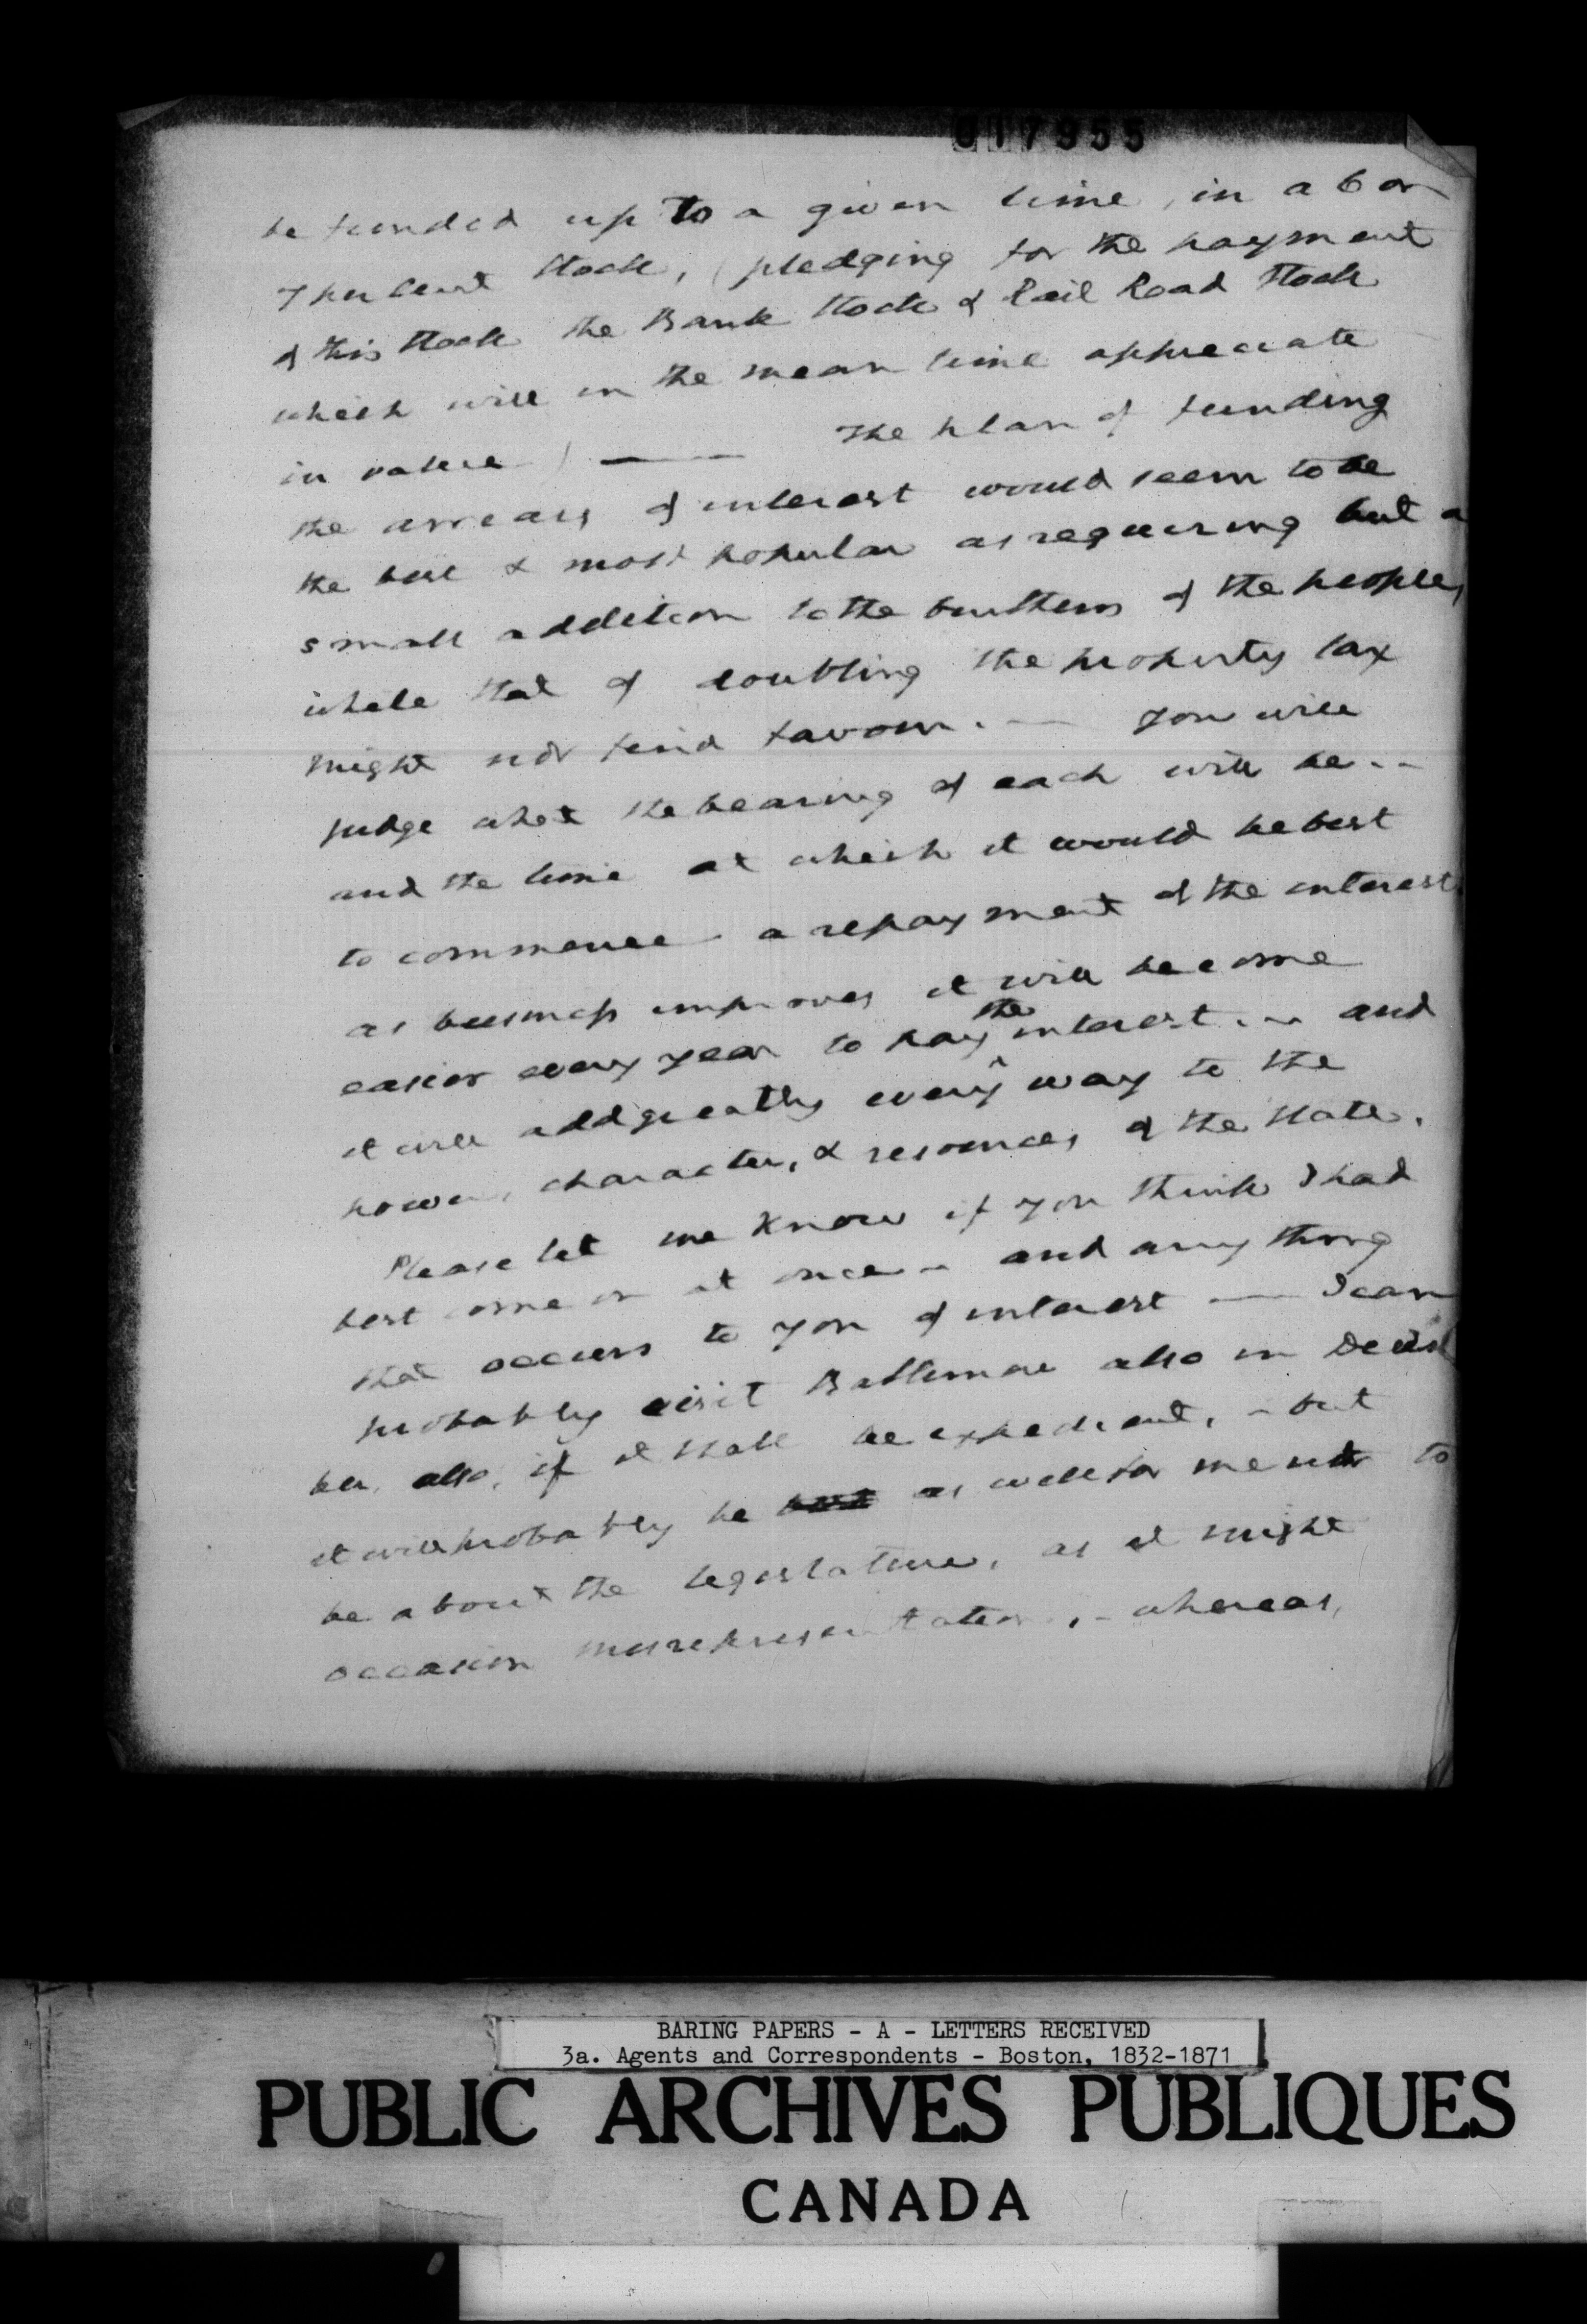 017955
be funded up to a given time, in a 6 or
7 per cent Stock, (pledging for the payment
of this Stock the Bank Stock & Rail Road Stock
which will in the mean time appreciate
in value) — The plan of funding
the arrears of interest would seem to be
the best & most popular as requiring but a
small addition to the burthens of the people,
while that of doubling the property tax
might not find favour. — You will
judge what the bearing of each will be --
and the time at which it would be best
to commence a repayment of the interest
as business improves it will become
easier every year to pay the interest. - and
it will add greatly every way to the
power, character, & resources of the State.
Please let me know if you think I had
best come on at once - and any thing
that occurs to you of interest — I can
probably visit Baltimore also in Decem
ber, also, if it shall be expedient, - but
it will probably be best as well for me not to
be about the legislature, as it might
occasion misrepresentation, - whereas,
BARING PAPERS - A - LETTERS RECEIVED
3a. Agents and Correspondents - Boston, 1832-1871
PUBLIC ARCHIVES PUBLIQUES
CANADA